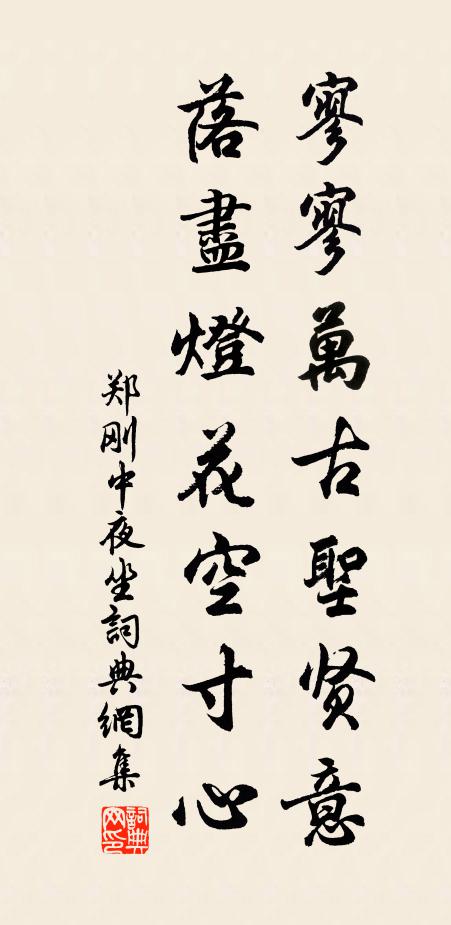 寥寥萬古聖贤意
落盡燈花空寸心
郑刚中夜坐詞典網集
詞典網印